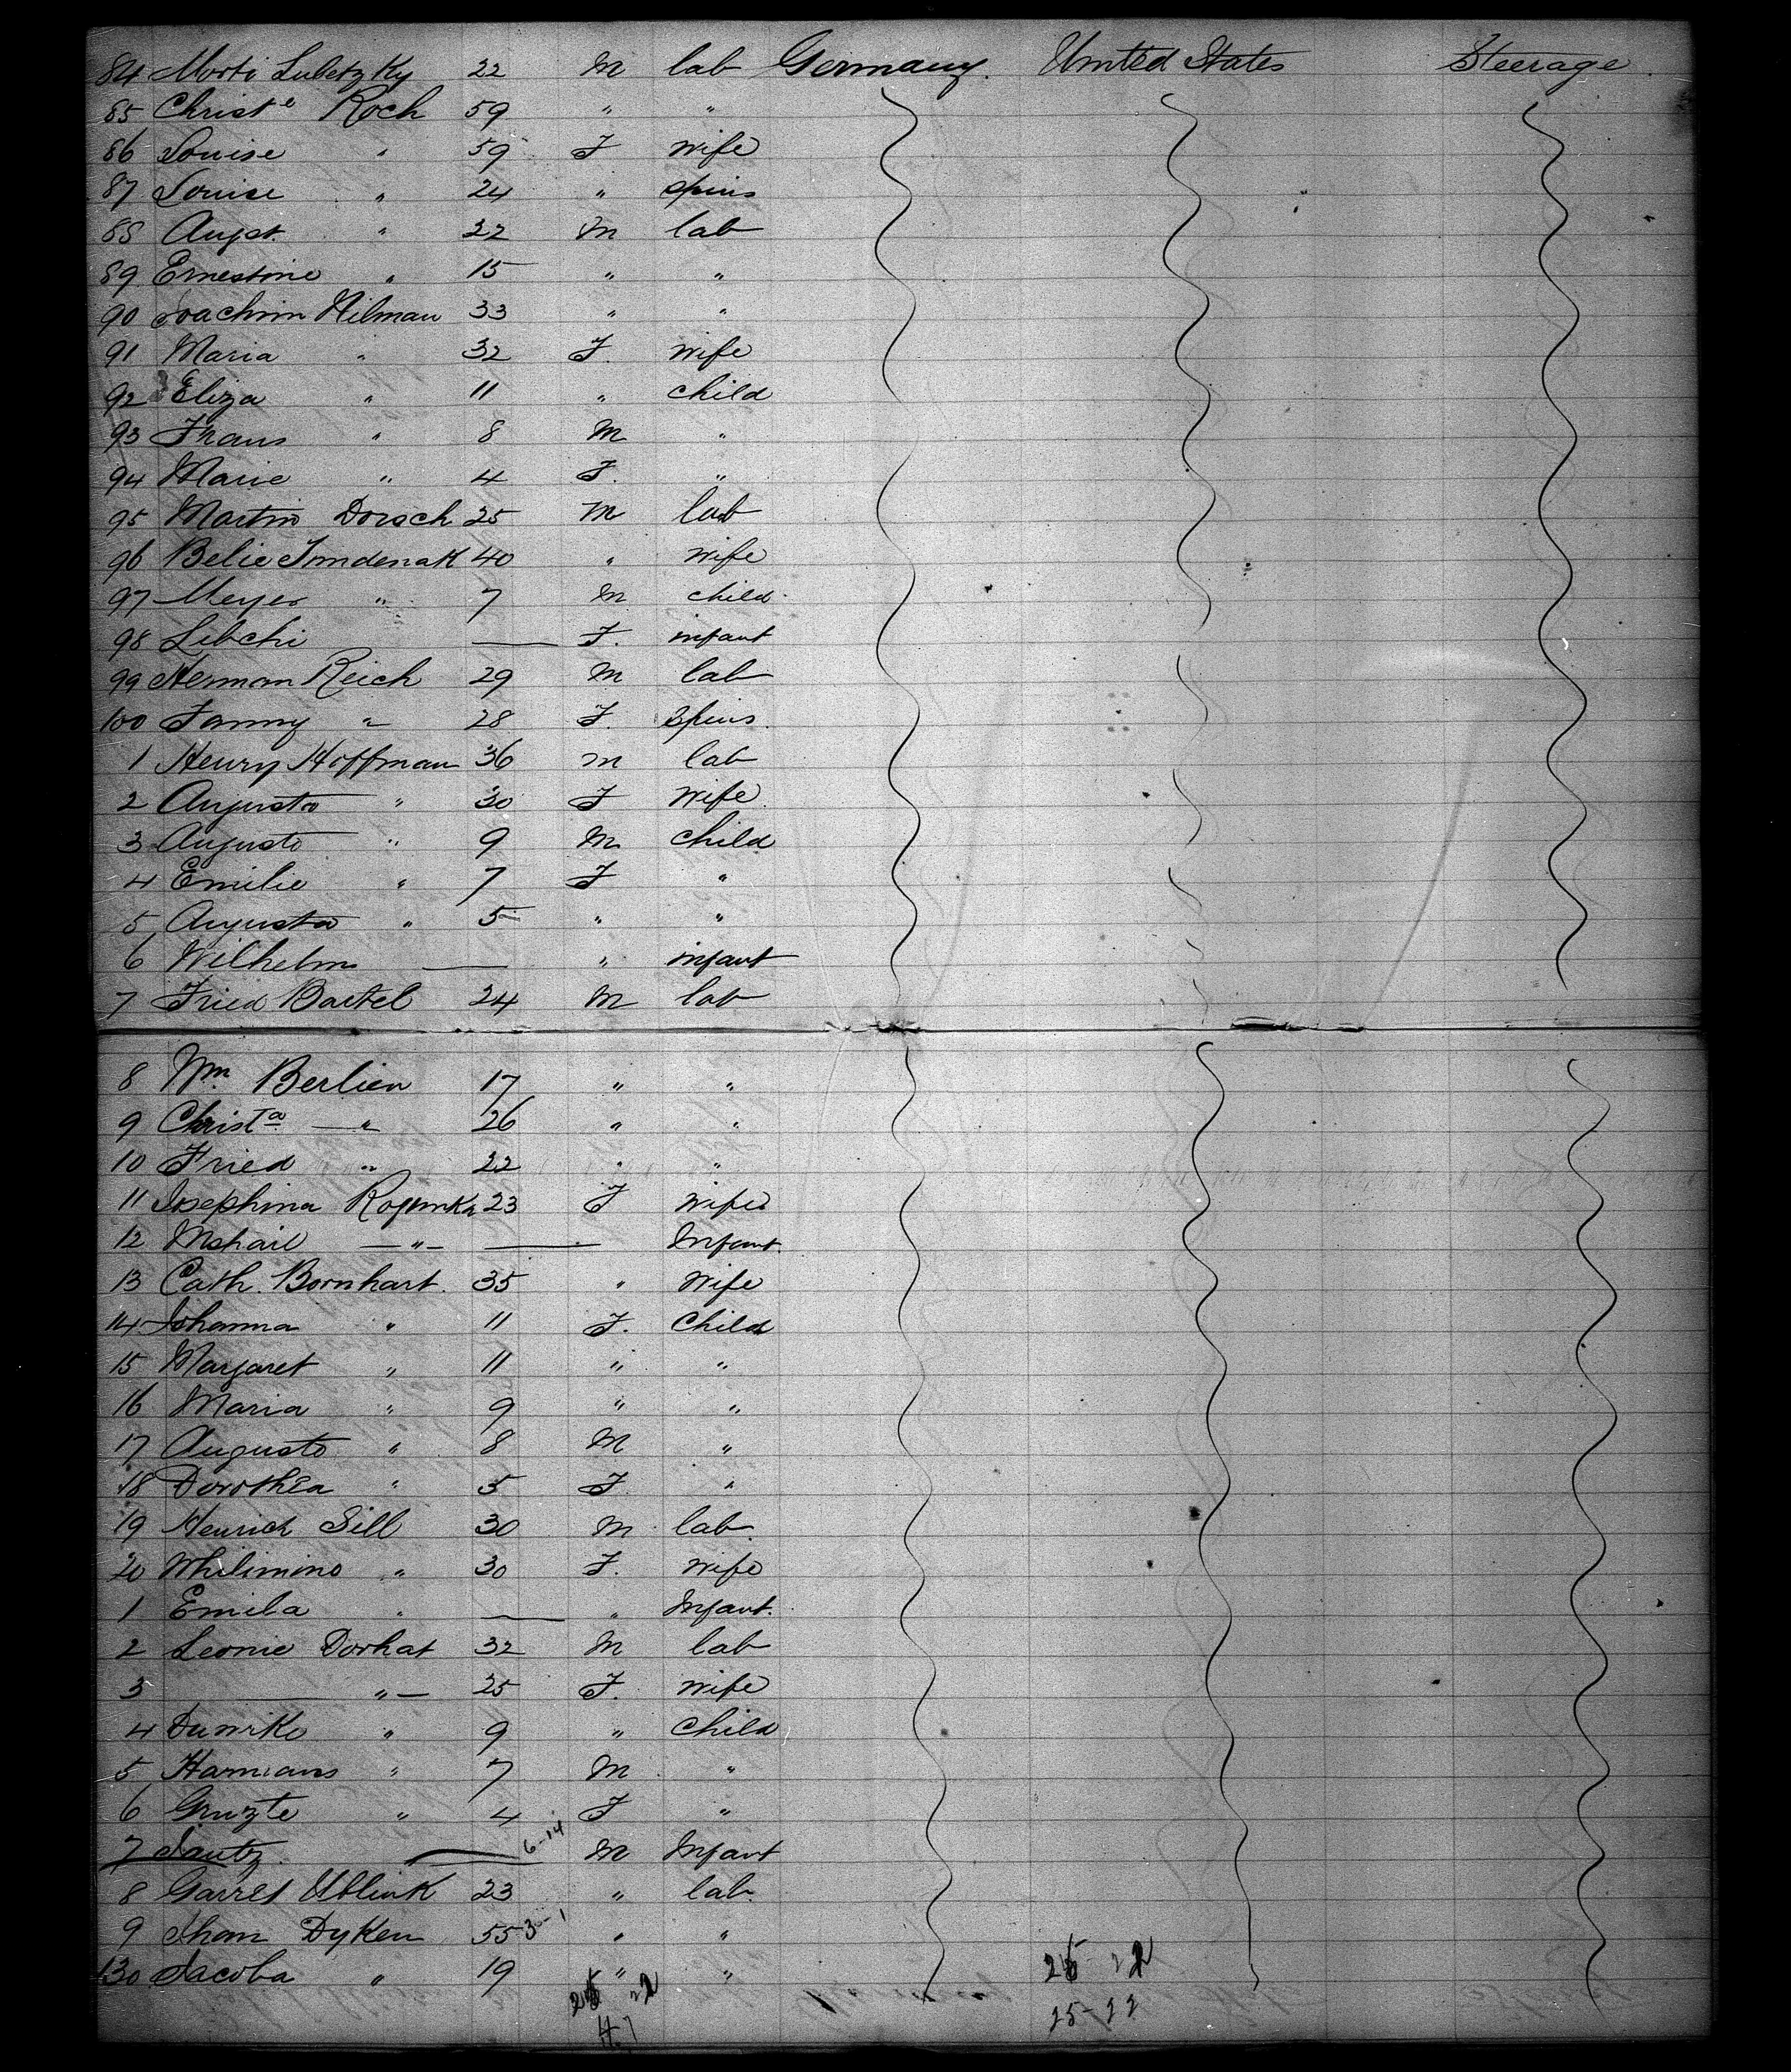 84 Morti Lubetzky 22 M lab Germany. United States Steerage
85 Christe Roch 59 " "
86 Louise " 59 F wife
87 Louise " 24 " spins
88 Augst. " 22 M lab
89 Ernestine " 15 " "
90 Joachim Hilman 33 " "
91 Maria " 32 F. wife
92 Eliza " 11 " child
93 Frans " 8 M "
94 Marie " 4 F. "
95 Martin Dorsch 25 M lab
96 Belie 40 " wife
97 Meyer " 7 M child
98 Libchi — F. infant
99 Herman Reich 29 M lab
100 Fanny " 28 F. Spins.
1 Henry Hoffman 36 M lab
2 Augusta " 30 F wife
3 Augusto " 9 M child
4 Emilie " 7 F "
5 Augusta " 5 " "
6 Wilhelm — " infant
7 Fried Bartel 24 M lab
8 Wm Berlien 17 " "
9 Christa — " 26 " "
10 Fried " 22 " "
11 Josephina 23 F wife
12 — " — — Infant.
13 Cath. Bornhart. 35 " Wife
14 Johanna " 11 F. Child
15 Margaret " 11 " "
16 Maria " 9 " "
17 Augusto " 8 M "
18 Dorothea " 5 F "
19 Henrich Sill 30 M lab
20 Whilimino " 30 F. wife
1 Emila " — " Infant.
2 Leonie Dorhat 32 M lab
3 — " — 25 F. wife
4 Dunrike " 9 " Child
5 Harmans " 7 M "
6 Gruzte " 4 F "
7 Lautz — 6-14 M Infant
8 Garret Ublink 23 " lab
9 Dyken 55 3-1 " "
130 Jacoba " 19 " "
25 22
47
25-22